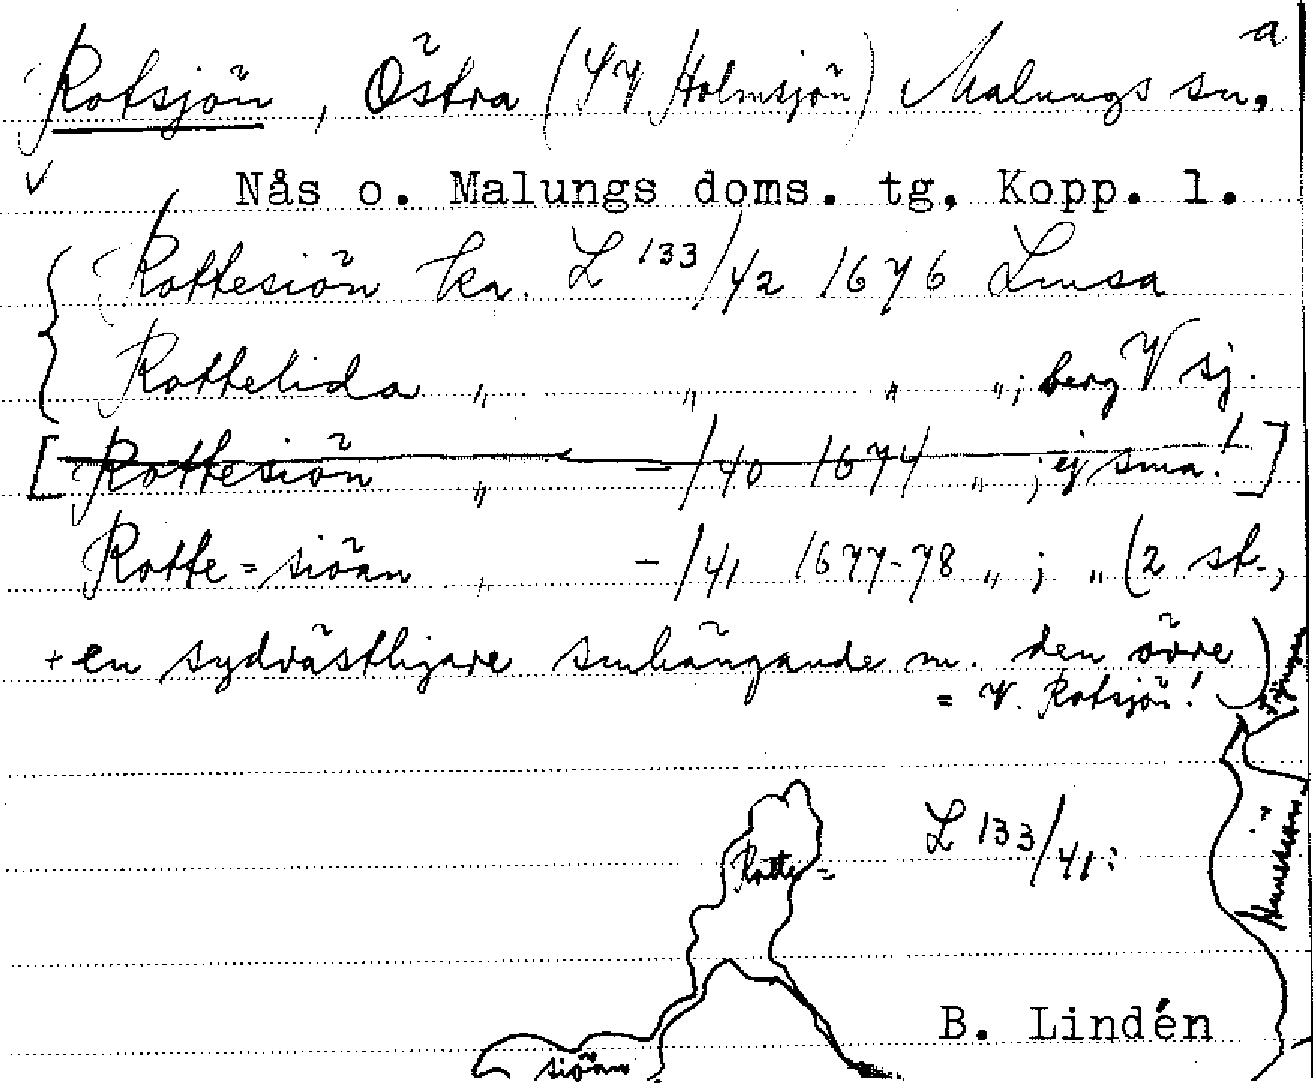 a
Rotsjön, Östra (SV Holmsjön) Malungs sn.
Nås o. Malungs doms. tg. Kopp. l.
Rottesiön ka. L 133/42 1676 Limsa
Rottelida " " " "; berg V sj.
[Rottesiön " -/40 1674 " ; ej sma!]
Rotte=siöan " -/41 1677-78 " ; " (2 st.,
+ en sydvästligare smhängande m. den övre)
= V. Rotsjön!
L 133/41:
Rotte=
B. Lindén
siöan